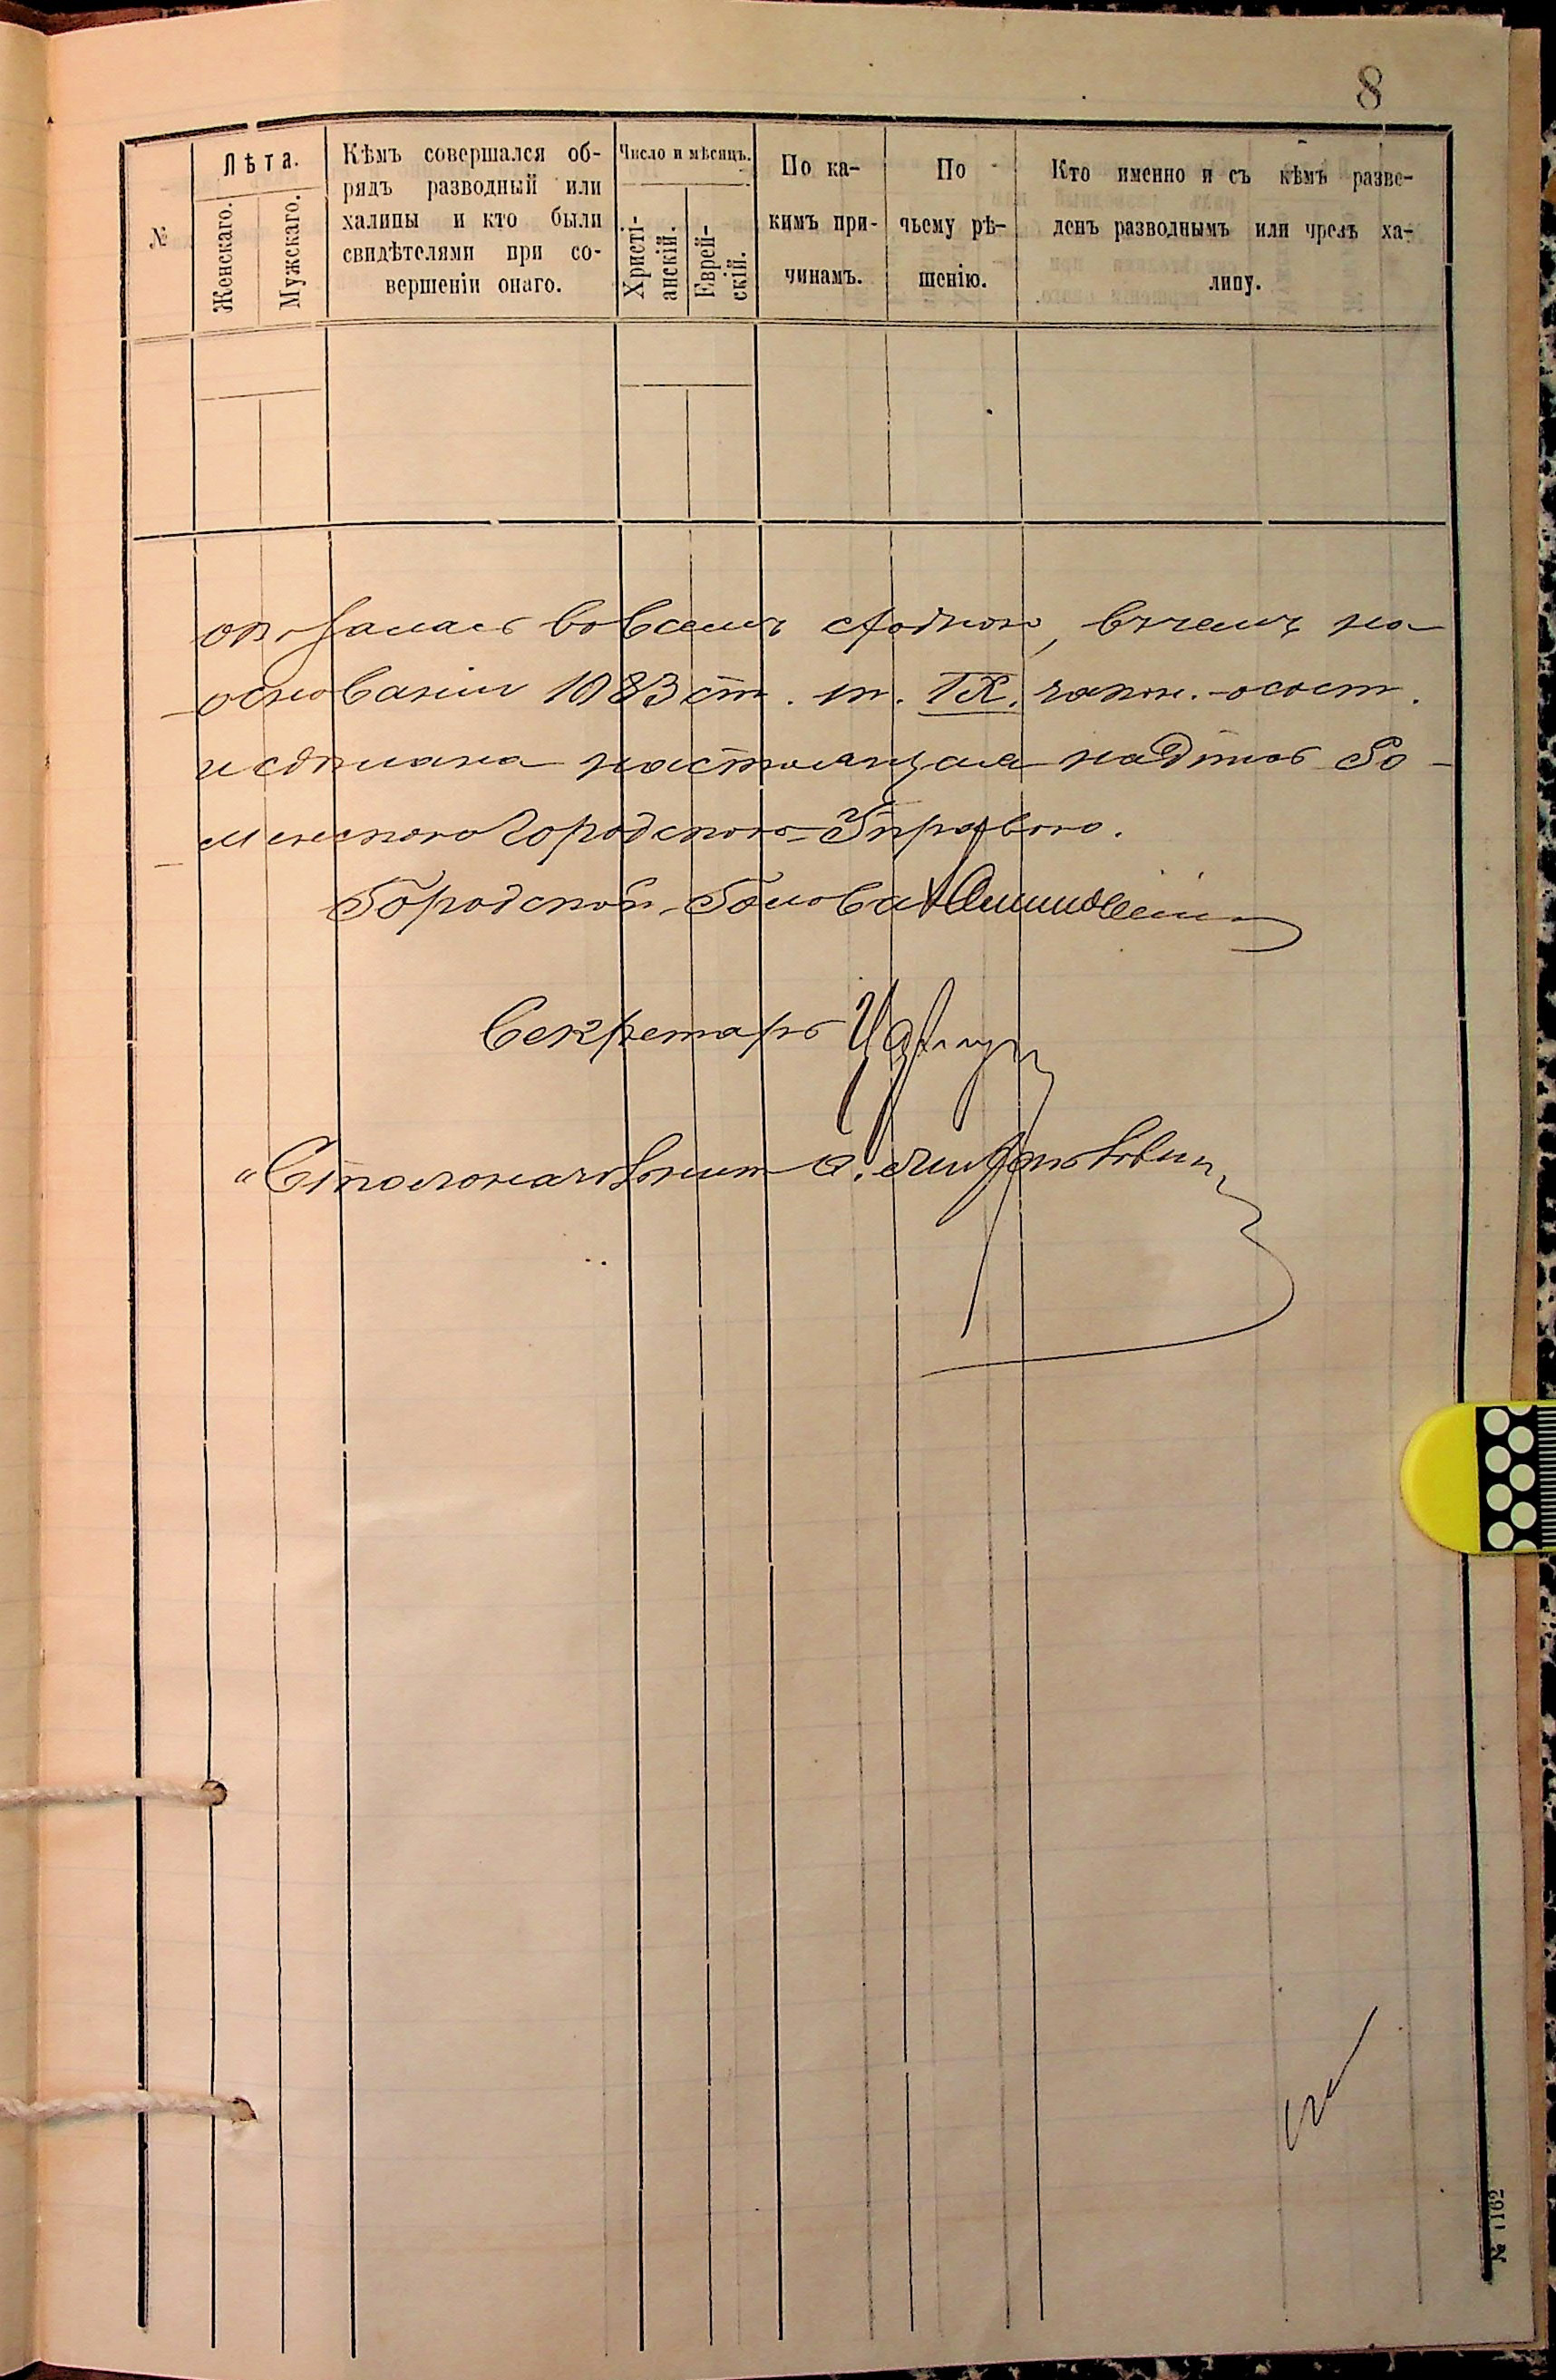 8
№
Лѣта.
Женскаго.
Мужскаго.
Кѣмъ совершался об-
рядъ разводный или
халипы и кто были
свидѣтелями при со-
вершеніи онаго.
Число и мѣсяцъ.
Христі-
анскій.
Еврей-
скій.
По ка-
кимъ при-
чинамъ.
По
чьему рѣ-
шенію.
Кто именно и съ кѣмъ разве-
денъ разводнымъ или чрезъ ха-
липу.
оказалась во всемъ сходною, въ чемъ на
основаніи 1083 ст. т. IX. закон. о сост.
и сдѣлана настоящая надпись Го-
менскою Городскою Управою.
Городской Голова
Секретарь
Столоначальникъ
№ 1162